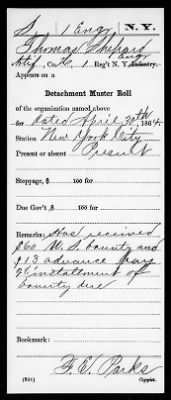 S 1 Engr. N.Y.
Thomas Shepard
Co. H, 1 Engr Reg't N. Y. Infantry.
Appears on a
Detachment Muster Roll
of the organization named above
for dated April 30th, 1864.
Station New York City
Present or absent Present
Stoppage, $ 100 for
Due Gov't $ 100 for
Remarks: Has received
$60 U.S. bounty and
$13 advance pay
2d installment of
bounty due
Bookmark:
F. E. Parks
Copyist.